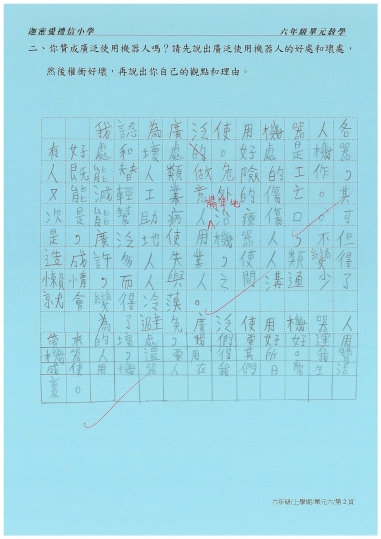 迦密愛禮信小學 六年級單元教學
二、你贊成廣泛使用機器人嗎？請先說出廣泛使用機器人的好處和壞處，
然後權衡好壞，再說出你自己的觀點和理由。
我認為廣泛使用機器人各
有好處和壞處的。好處是機器
人既能替人類做危險的工作，
又能減輕工業意外的傷亡。其
次是能幫助病人治療傷口。可
是，廣泛地使用機器人，不但
造成許多人失業，使人類變得
懶惰，而人與人之間溝通少了
就會變得冷漠。
為了避免廣泛使用機器人
帶來的壞處，我們要好好運用
機器人，還要用得其所。我贊
成使用機器人在我們日常生活
裏。
六年級/上學期/單元六/第2頁